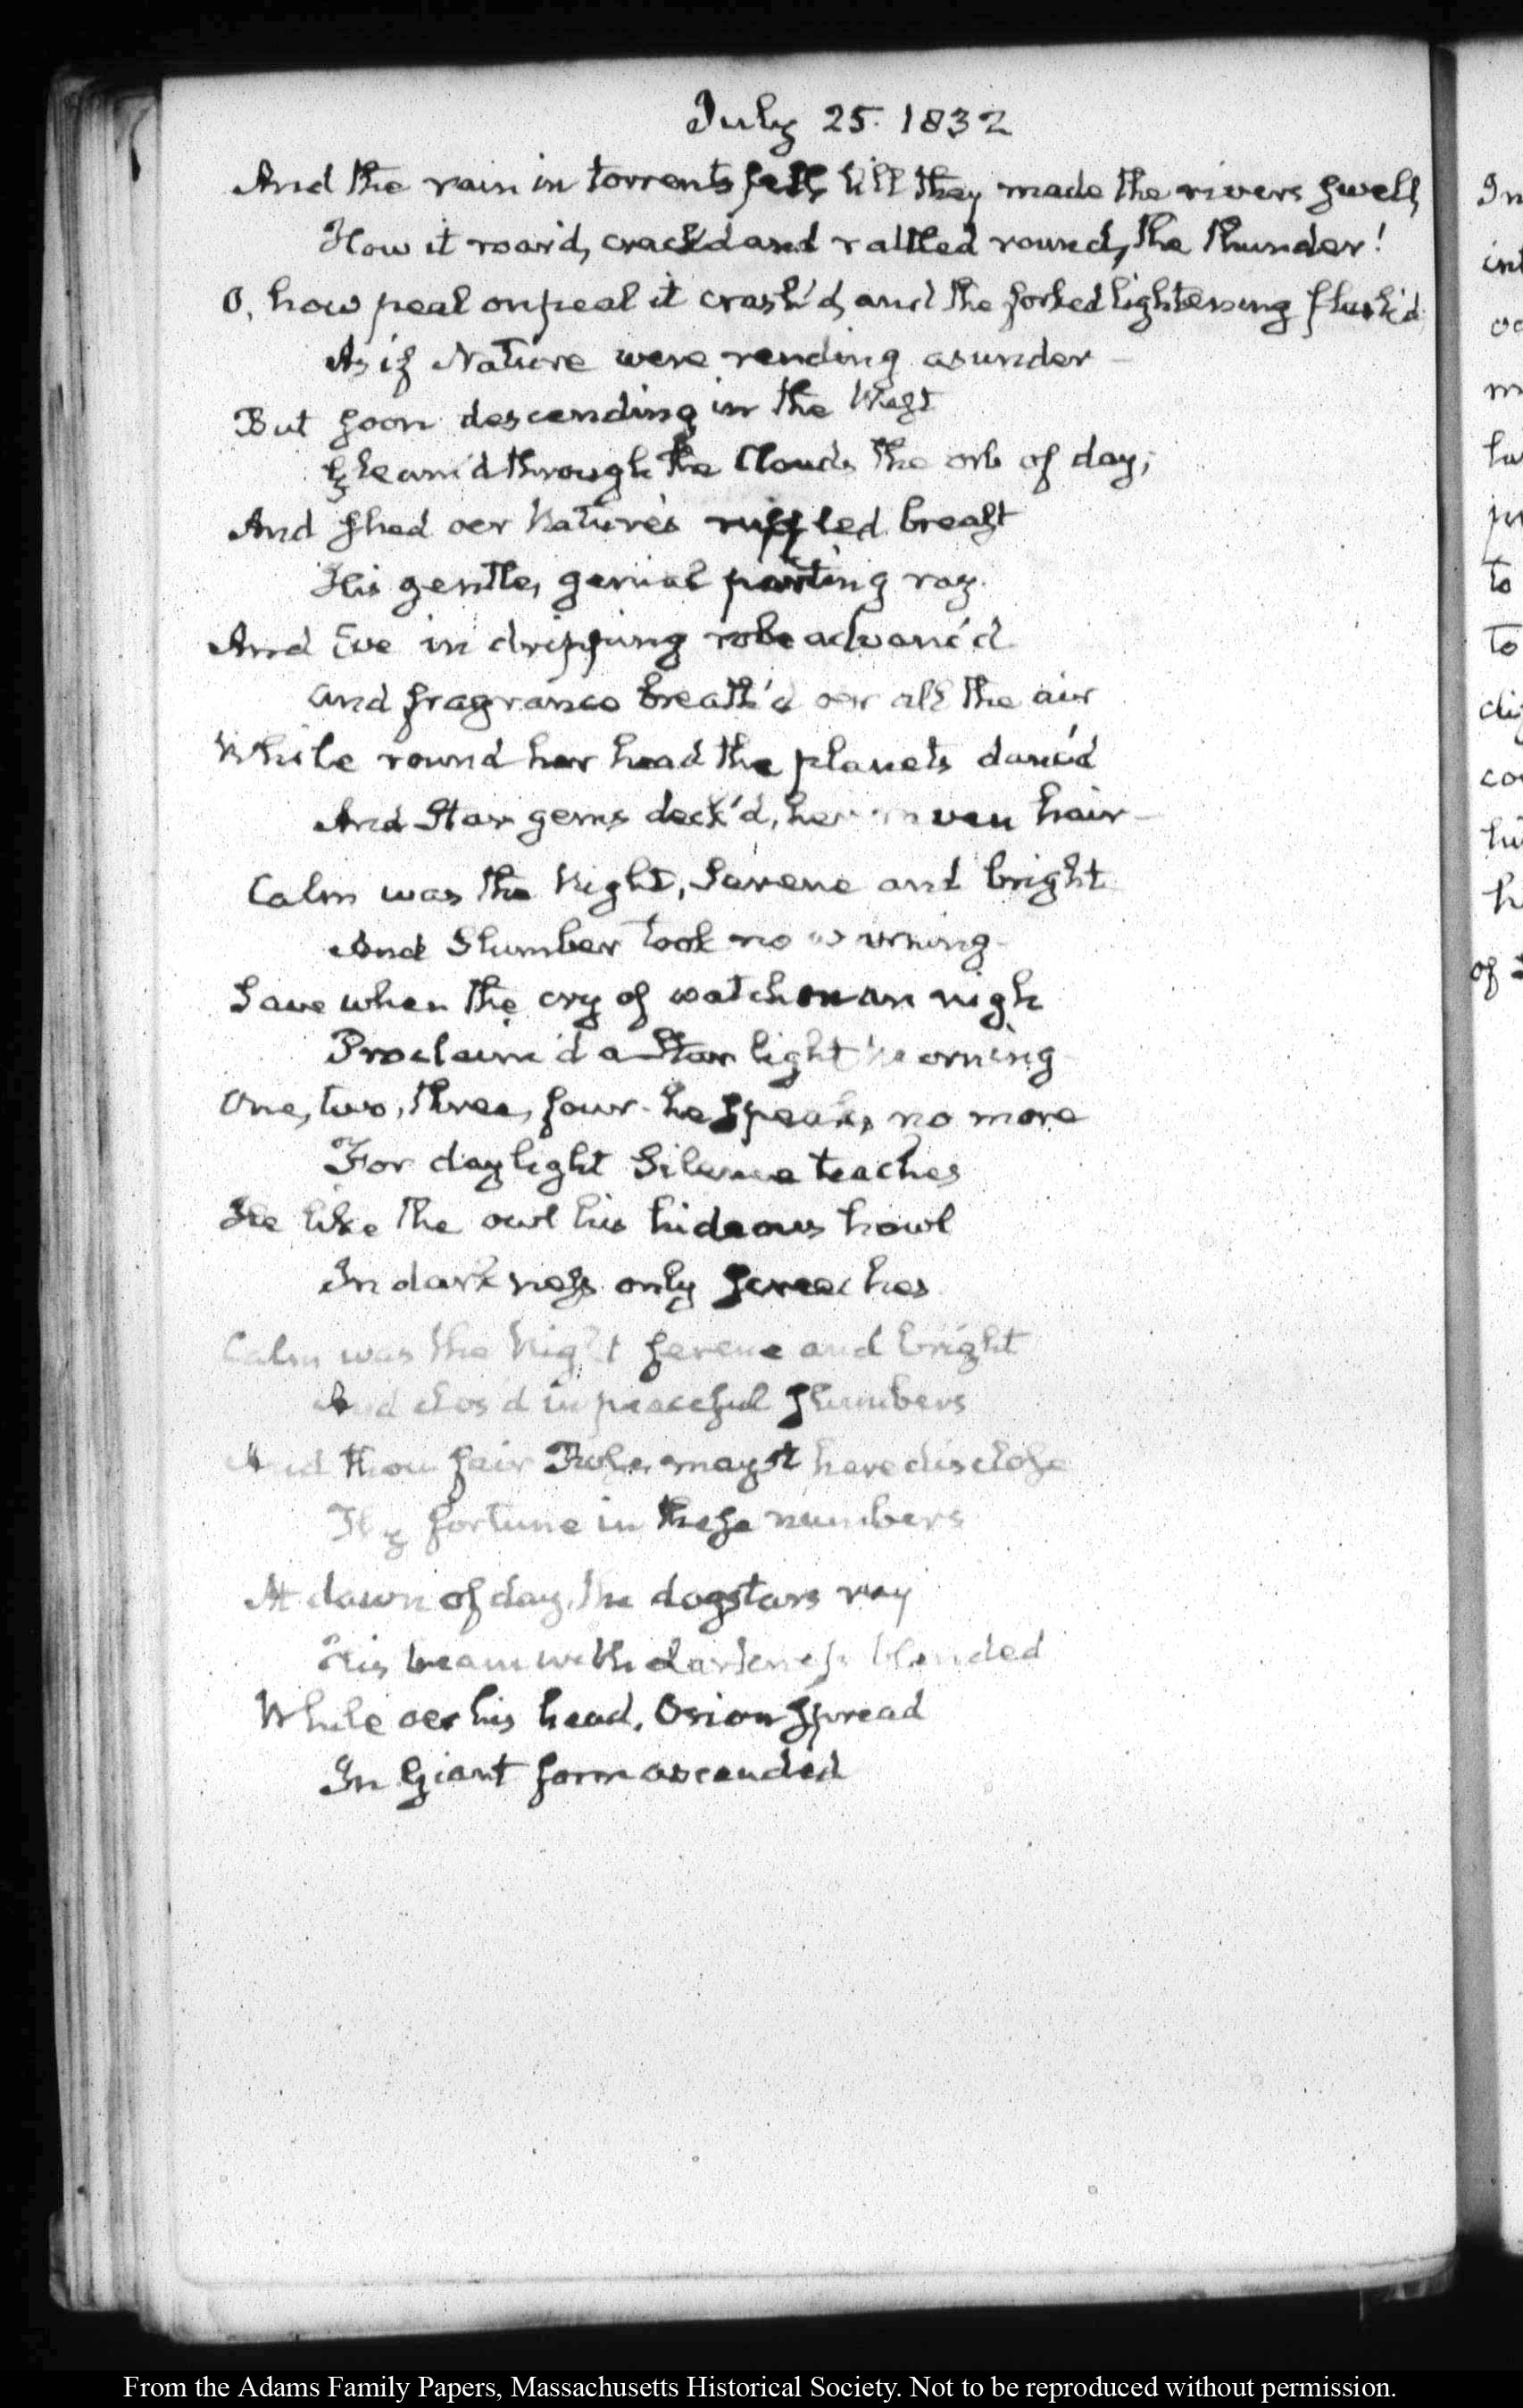 July 25. 1832
And the rain in torrents fell, till they made the rivers swell,
How it roar'd, crack'd and rattled round, the thunder!
O, how peal on peal it crash'd, and the forked lightening flash'd
As if Nature were rending asunder —
But soon descending in the West
Gleam'd through the Clouds the orb of day;
And shed oer Nature's ruffled breast
His gentle, genial parting ray.
And Eve in dripping robe advanc'd
And fragrance breath'd oer all the air
While round her head the planets danc'd
And Star gems deck'd, her raven hair —
Calm was the Night, Serene and bright
And Slumber took no warning —
Save when the cry of watchman nigh
Proclaim'd a Star light morning
One, two, three, four — he speaks, no more
For daylight Silence teaches
He like the owl his hideous howl
In darkness only screeches
Calm was the Night serene and bright
And clos'd in peaceful slumbers
And thou fair mayst have disclose
Thy fortune in these numbers
At dawn of day, the dogstars ray
His beam with darkness blended
While oer his head, Orion spread
In Giant form ascended
In
to
to
of
From the Adams Family Papers, Massachusetts Historical Society. Not to be reproduced without permission.